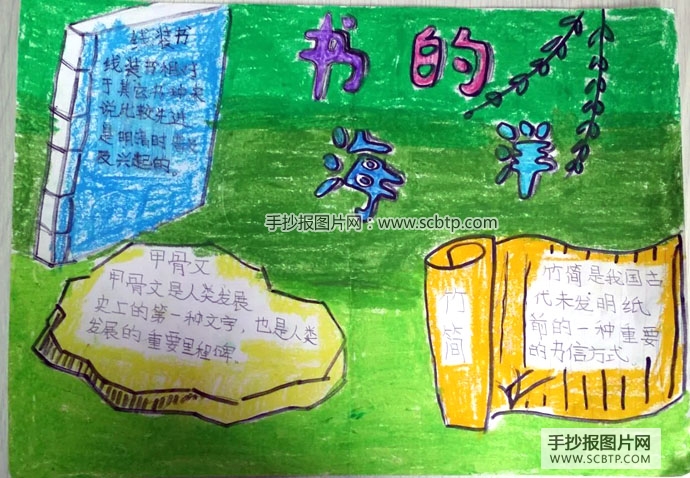 书的
海洋
线装书
线装书相对
于其它几种来
说比较先进
是明清时
及兴起的。
手抄报图片网：www.scbtp.com
甲骨文
甲骨文是人类发展
史上的第一种文字，也是人类
发展的重要里程碑。
竹简
竹简是我国古
代未发明纸
前的一种重要
的书信方式
手抄报图片网
WWW.SCBTP.COM